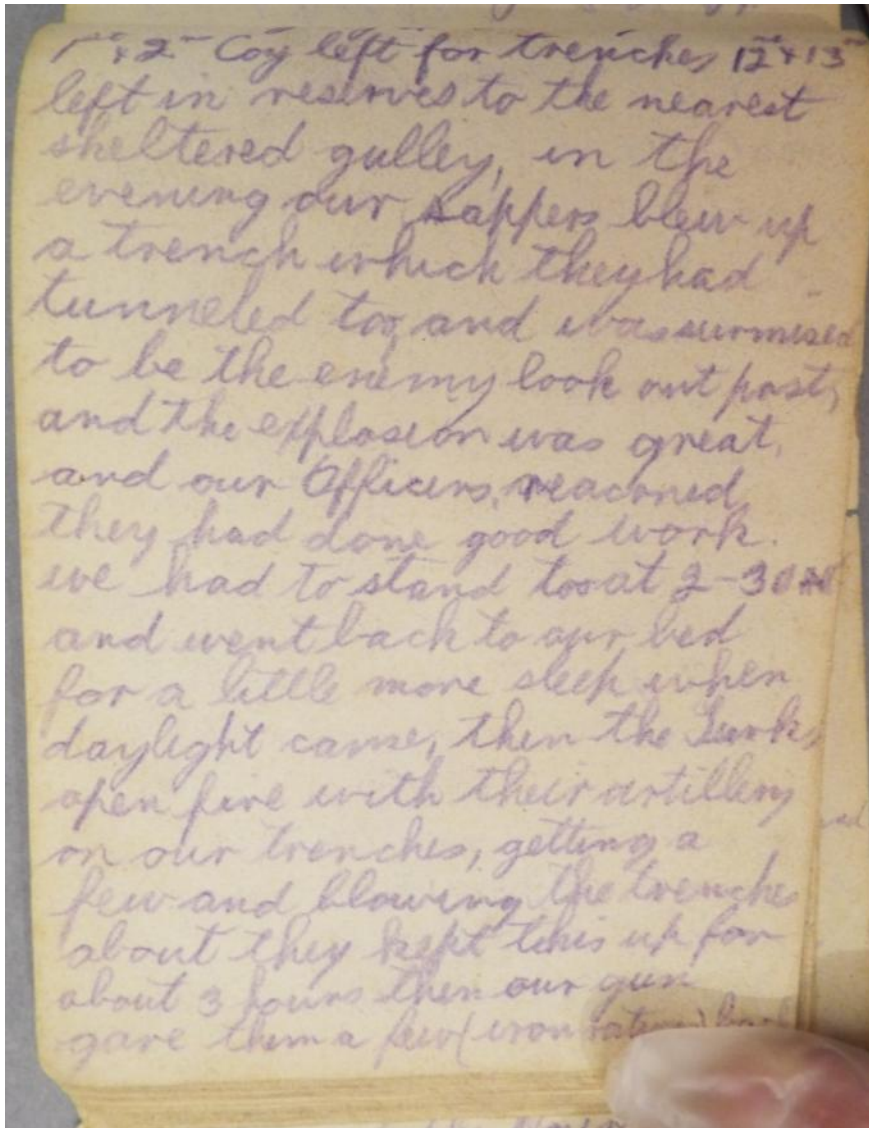 1st & 2nd Coy left for trenches 12th & 13th
left in reserves to the nearest
sheltered gulley, in the
evening our sappers blew up
a trench which they had
tunneled too, and was surmised
to be the enemy look out post,
and the explosion was great,
and our Officers, reaconed
they had done good work.
we had to stand too at 2-30
and went back to our bed
for a little more sleep when
daylight came, then the Turks
open fire with their artillery
on our trenches, getting a
few and blowing the trenches
about they kept this up for
about 3 hours then our gun
gave them a few (iron rations) back